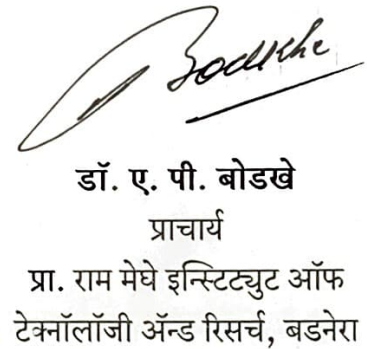 Bodkhe
डॉ. ए. पी. बोडखे
प्राचार्य
प्रा. राम मेघे इन्स्टिट्युट ऑफ
टेक्नॉलॉजी ॲन्ड रिसर्च, बडनेरा